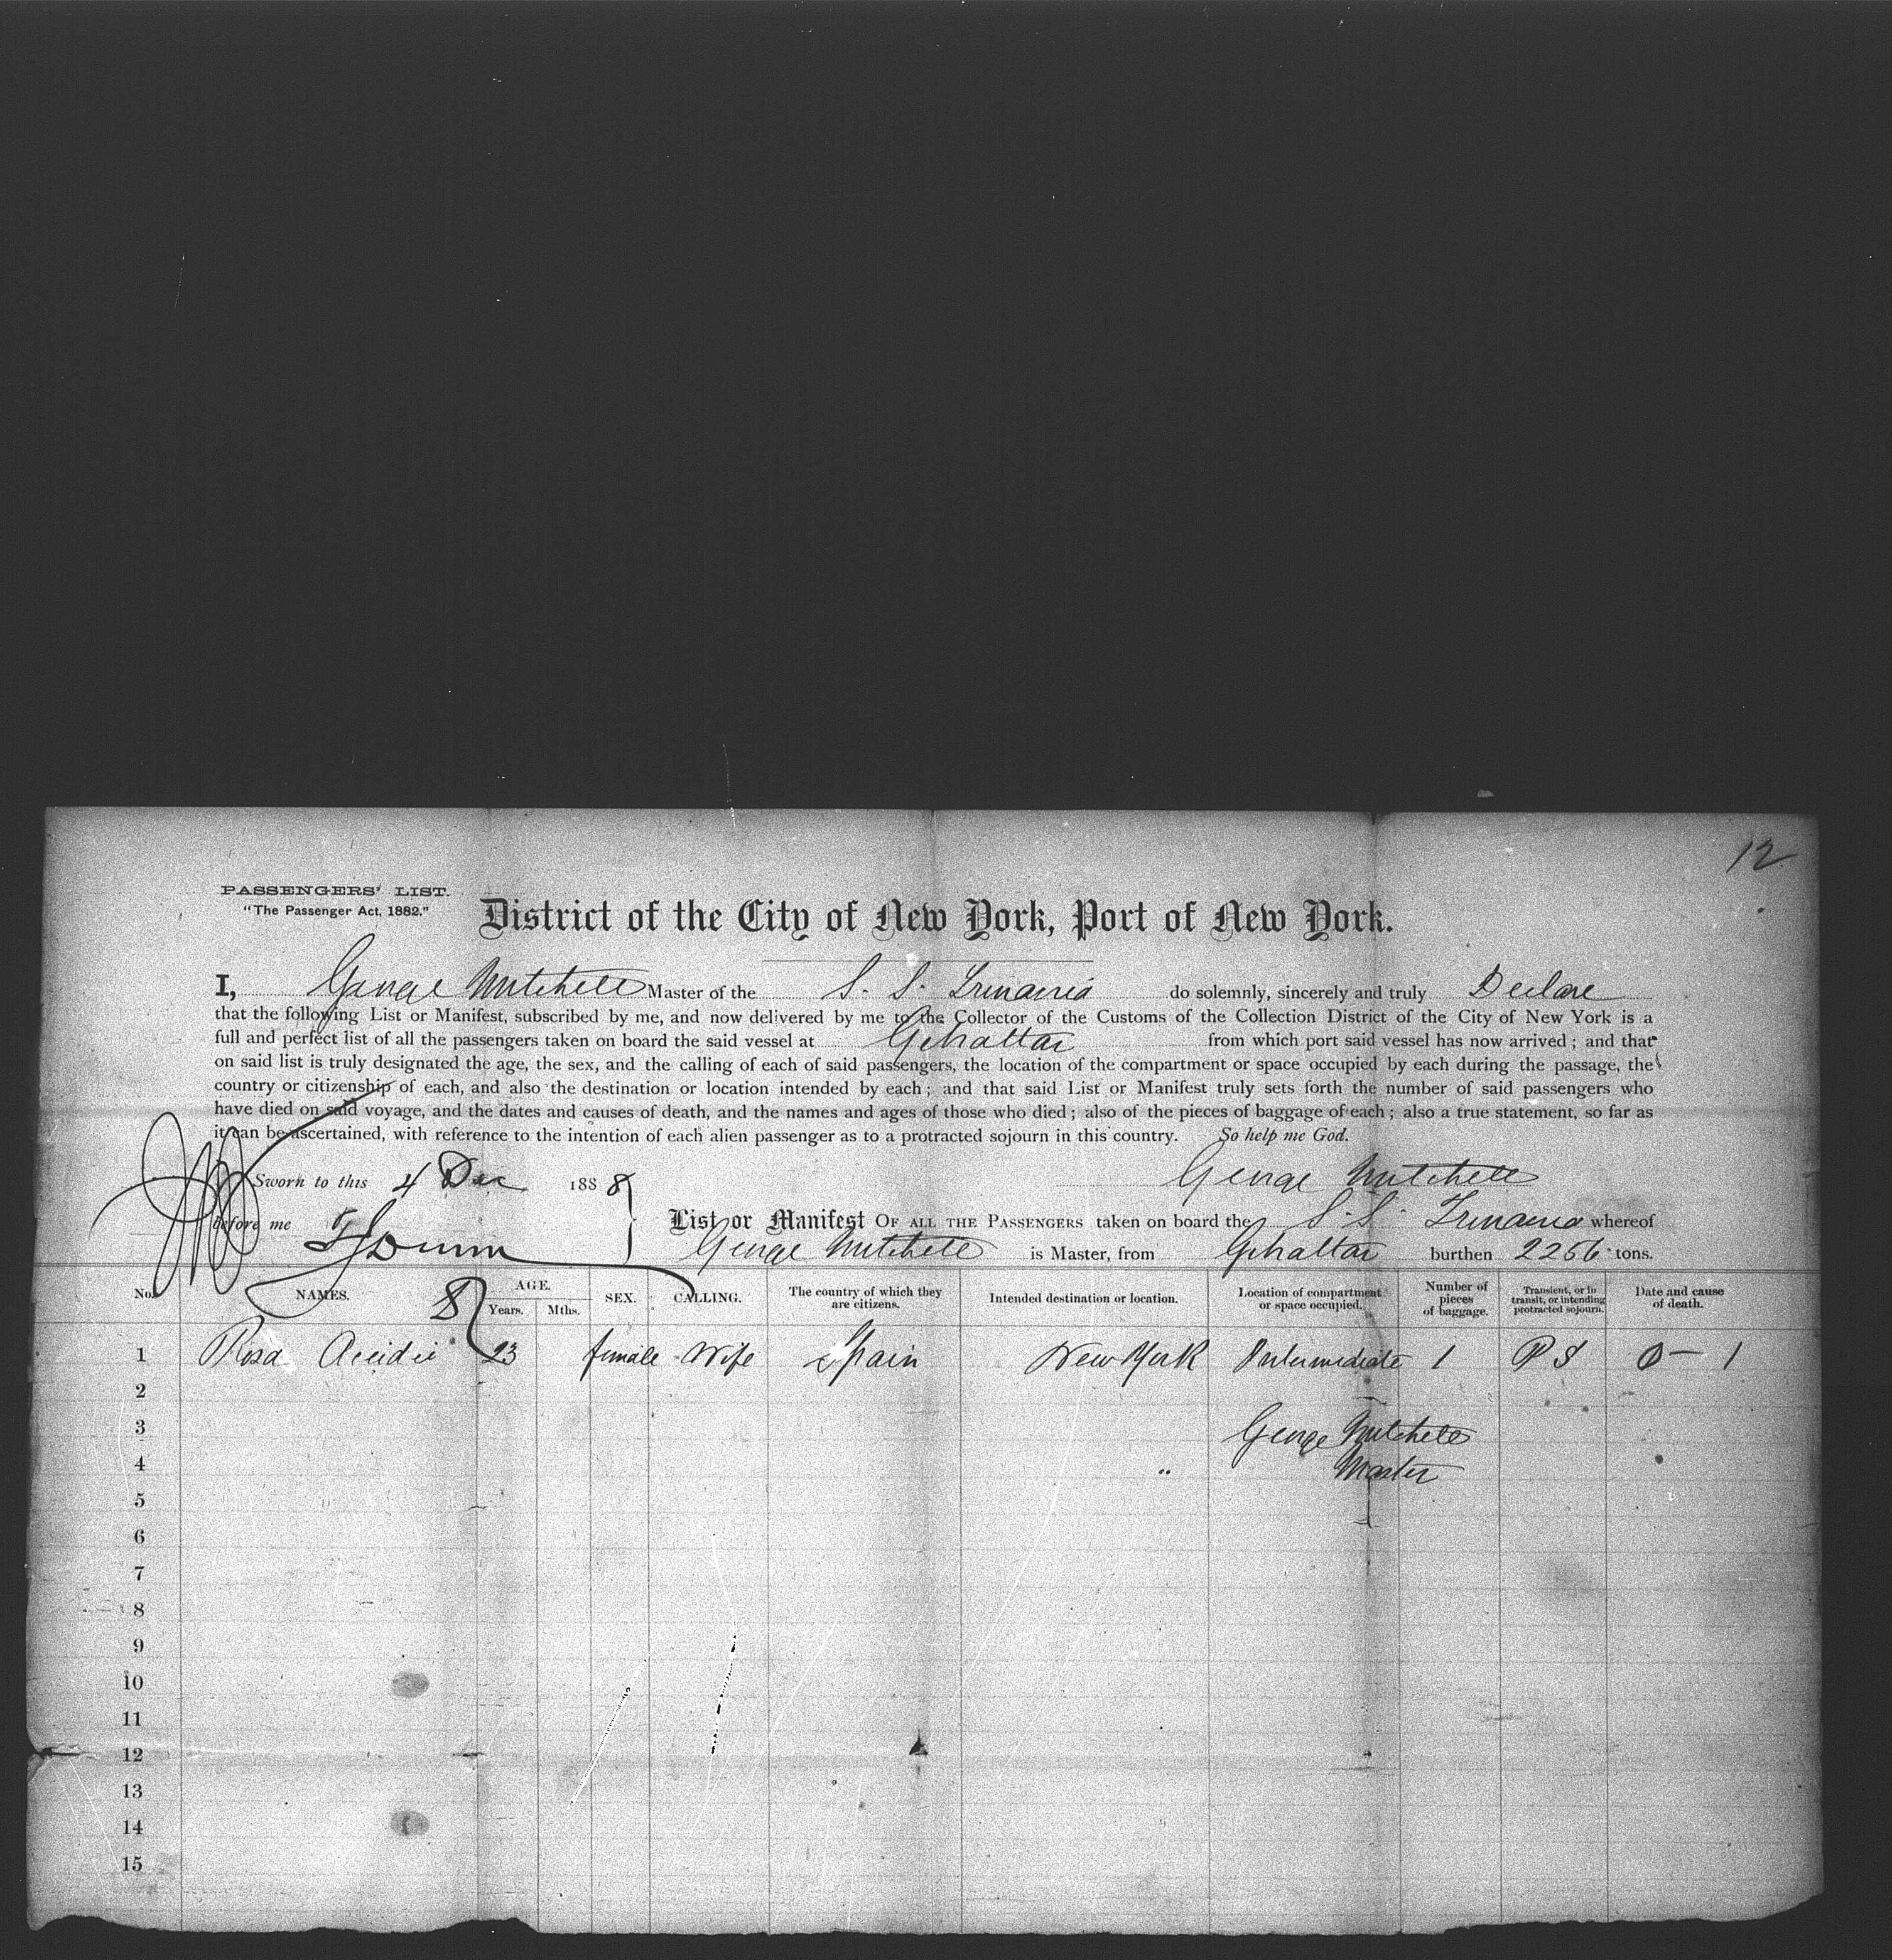 12
PASSENGERS' LIST.
"The Passenger Act, 1882."
District of the City of New York, Port of New York.
I, George Mitchell Master of the S. S. Trinacria do solemnly, sincerely and truly Declare
that the following List or Manifest, subscribed by me, and now delivered by me to the Collector of the Customs of the Collection District of the City of New York is a
full and perfect list of all the passengers taken on board the said vessel at Gibraltar from which port said vessel has now arrived; and that
on said list is truly designated the age, the sex, and the calling of each of said passengers, the location of the compartment or space occupied by each during the passage, the
country or citizenship of each, and also the destination or location intended by each; and that said List or Manifest truly sets forth the number of said passengers who
have died on said voyage, and the dates and causes of death, and the names and ages of those who died; also of the pieces of baggage of each; also a true statement, so far as
it can be ascertained, with reference to the intention of each alien passenger as to a protracted sojourn in this country. So help me God.
Sworn to this 4 Dec 1888 George Mitchell
before me
List or Manifest OF ALL THE PASSENGERS taken on board the S. S. Trinacria whereof
George Mitchell is Master, from Gibraltar burthen 2256 tons.
No. NAMES. AGE. Years. Mths. SEX. CALLING. The country of which they are citizens. Intended destination or location. Location of compartment or space occupied. Number of pieces of baggage. Transient, or in transit, or intending protracted sojourn. Date and cause of death.
1 Rosa 23 female Wife Spain New York Intermediate 1 P S 0 — 1
2
3 George Mitchell
4 " Master
5
6
7
8
9
10
11
12
13
14
15